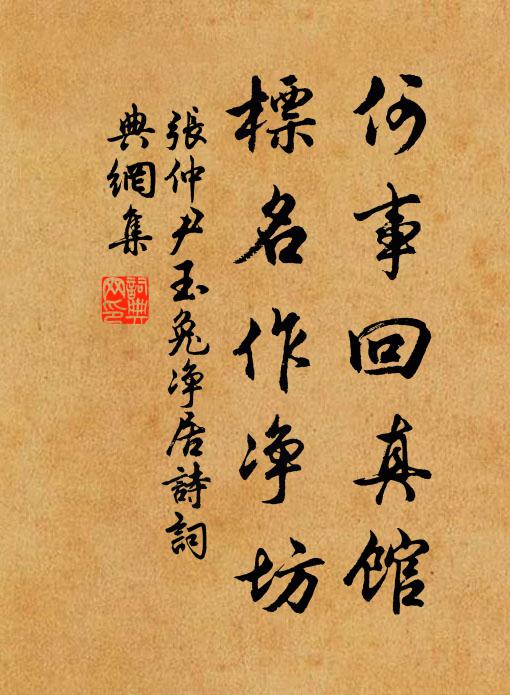 何事回真館
標名作净坊
張仲尹玉兔净居詩詞
典網集
詞典網印